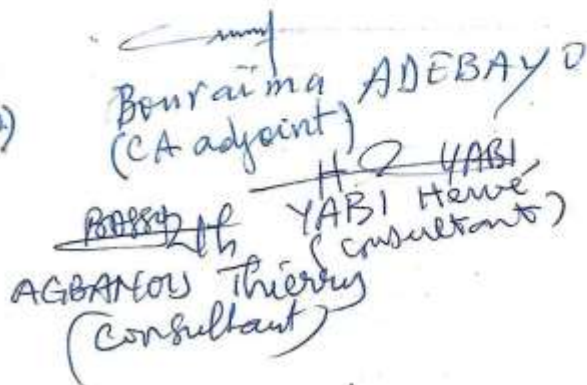 Bouraïma ADEBAYO
(CA adjoint)
H YABI
YABI Hervé
(consultant)
AGBANOU Thierry
(consultant)